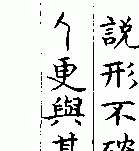 說形不破
个更與其